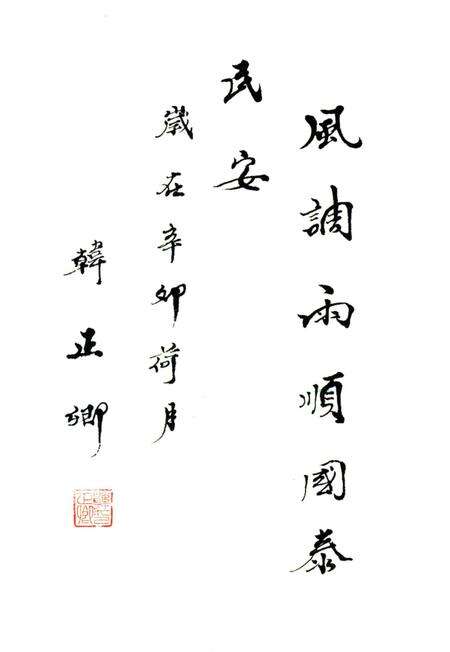 風調雨順國泰
民安
歲在辛卯荷月
韓正卿